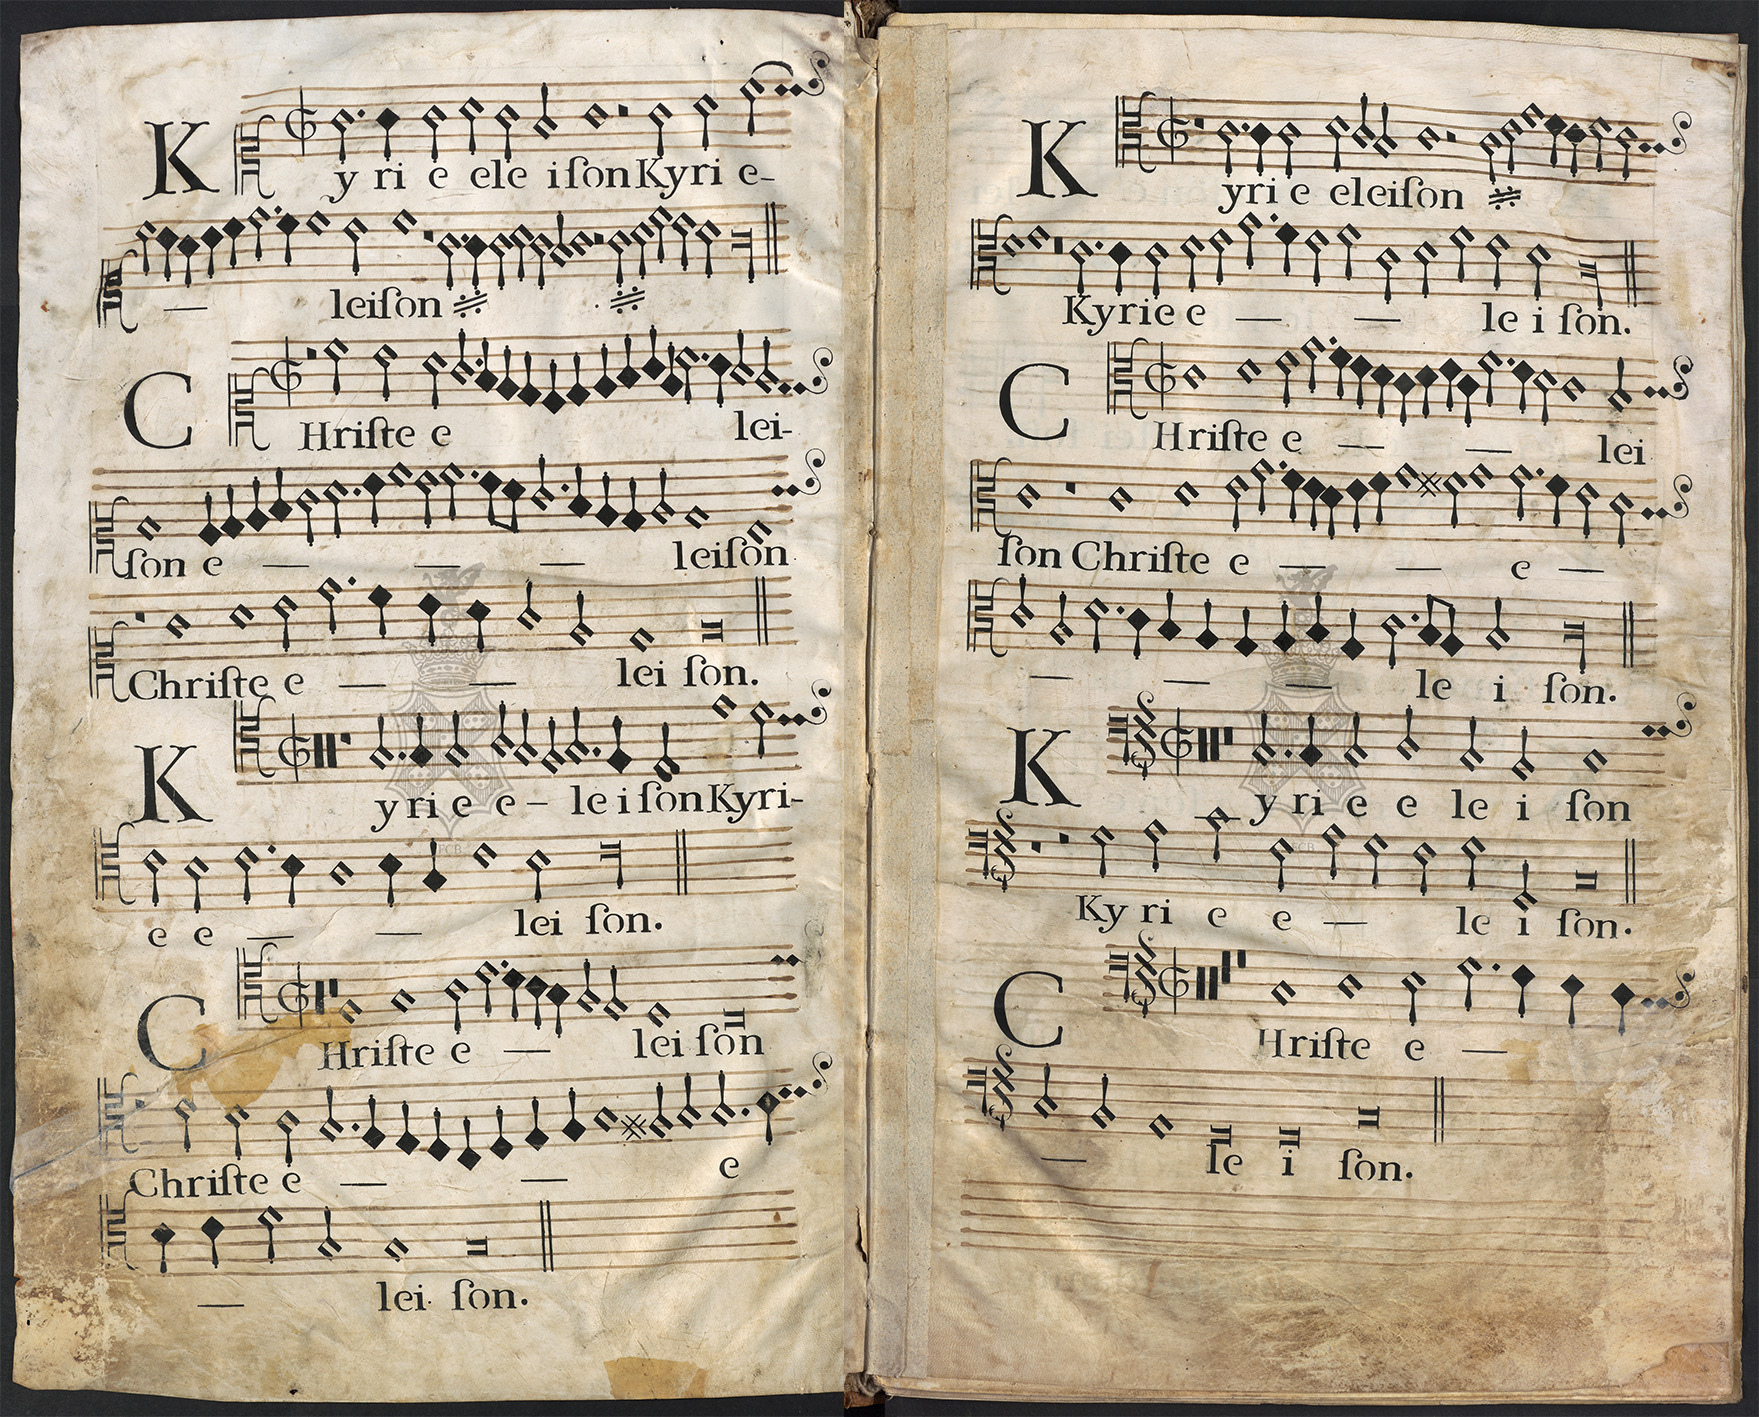 K yri e ele iſon Kyri e-
— leiſon
C Hriſte e lei-
ſon e — — — leiſon
Chriſte e — — lei ſon.
K yri e e- le i ſon Kyri-
e e — — lei ſon.
C Hriſte e — lei ſon
Chriſte e — — e
— lei ſon.
K yri e eleiſon
Kyrie e — — le i ſon.
C Hriſte e — — lei
ſon Chriſte e — — e —
— — — le i ſon.
K yri e e le i ſon
Ky ri e e — le i ſon.
C Hriſte e —
— le i ſon.